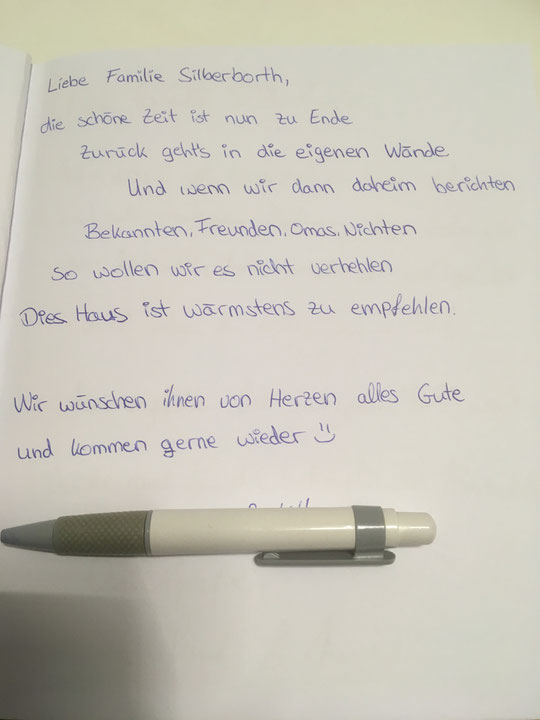 Liebe Familie Silberborth,
die schöne Zeit ist nun zu Ende
Zurück geht's in die eigenen Wände
Und wenn wir dann daheim berichten
Bekannten, Freunden, Omas, Nichten
so wollen wir es nicht verhehlen
Dies Haus ist wärmstens zu empfehlen.
Wir wünschen ihnen von Herzen alles Gute
und kommen gerne wieder